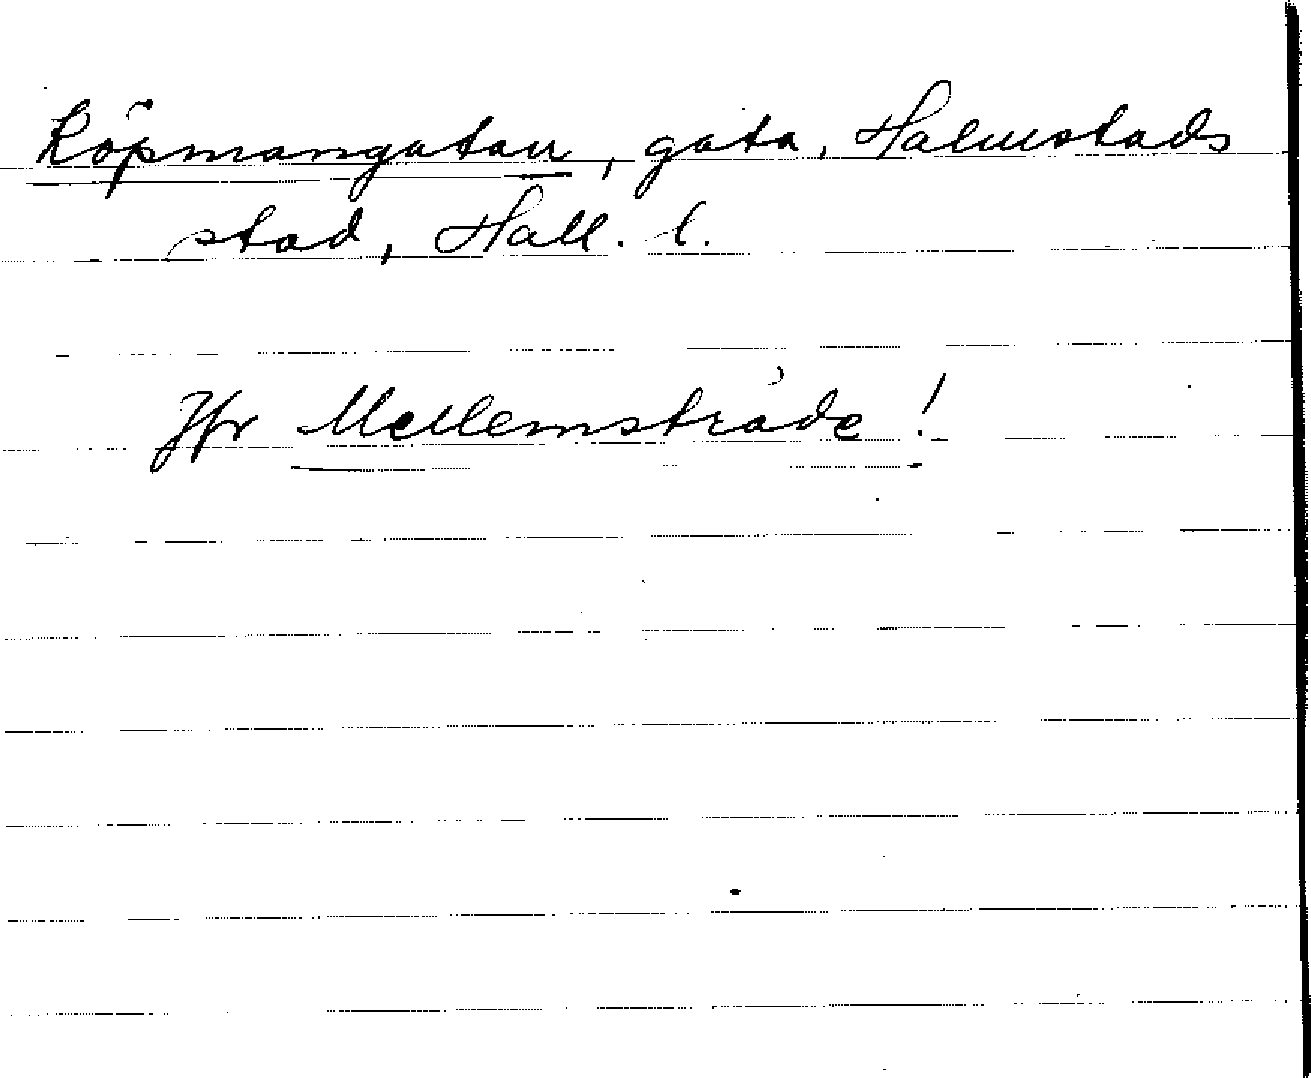 Köpmangatan, gata, Halmstads
stad, Hall. l.
Jfr Mellemstråde!